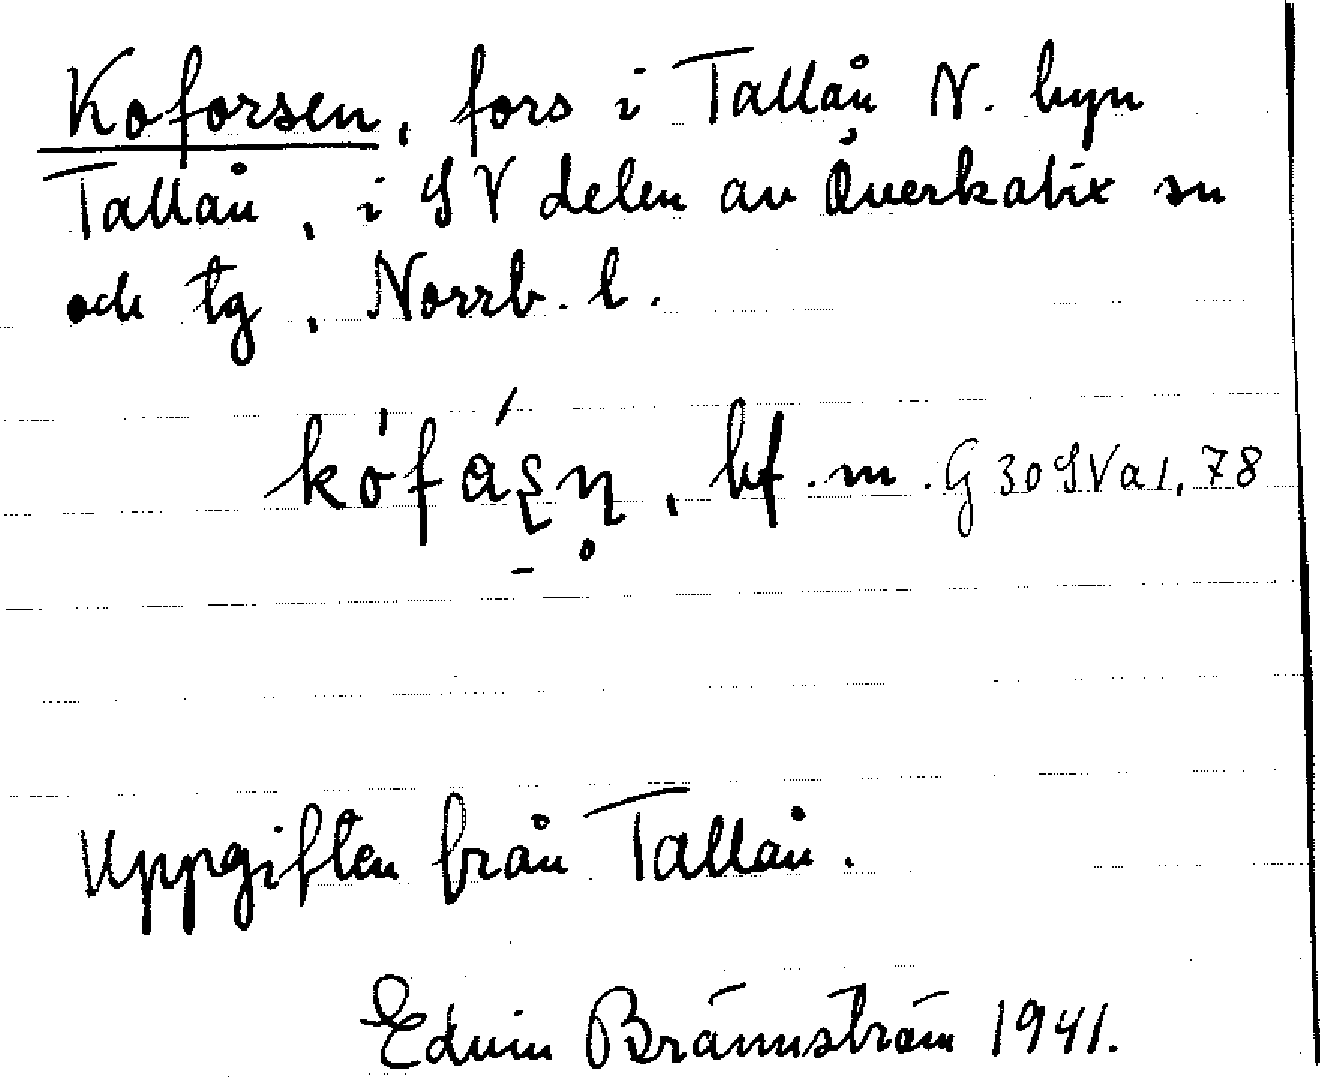 Koforsen, fors i Tallån N. byn
Tallån, i SV delen av Överkalix sn
och tg, Norrb. l.
bf. m. G 30 SV a 1, 78
Uppgiften från Tallån.
Edvin Brännström 1941.